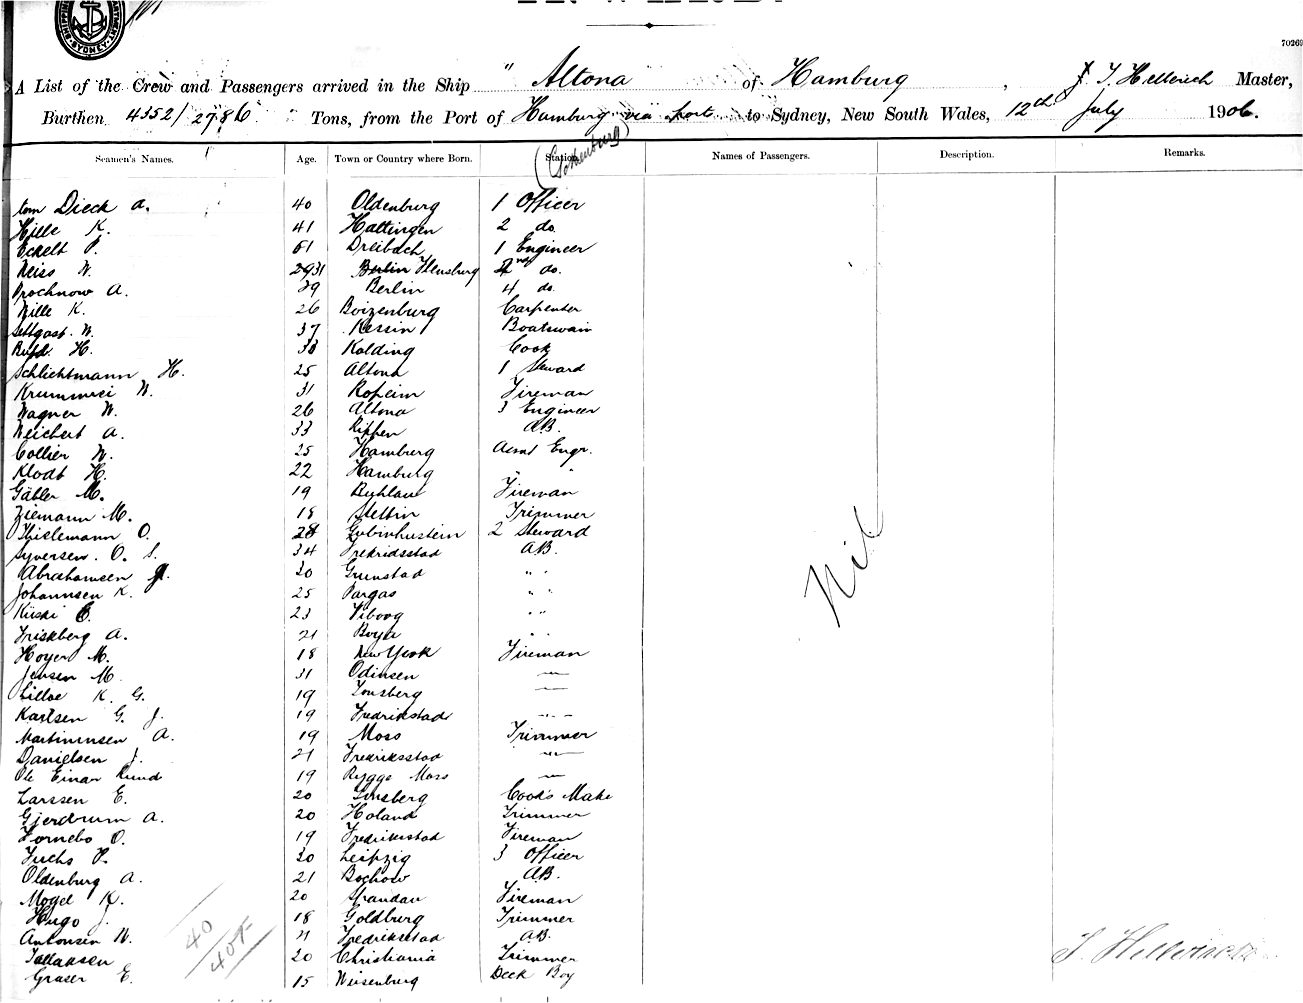 SYDNEY
70269
A List of the Crew and Passengers arrived in the Ship " Altona of Hamburg, J. Hellerich Master,
Burthen 4352/2786 Tons, from the Port of Hamburg via ports to Sydney, New South Wales, 12th July 1906.
(Gothenburg)
Seamen's Names. Age. Town or Country where Born. Station. Names of Passengers. Description. Remarks.
tom Dieck A. 40 Oldenburg 1 Officer
Hille K. 41 Hattingen 2 do.
Eckelt P. 61 Dreibach 1 Engineer
Weiss W. 2931 Berlin Flensburg do.
Prochnow A. 29 Berlin 4 do.
Wille K. 26 Boizenburg Carpenter
Settgast. W. 37 Kessin Boatswain
H. 38 Kolding Cook
Schlichtmann H. 25 Altona 1 Steward
W. 31 Fireman
Wagner W. 26 Altona 3 Engineer
Weichert A. 33 Rippen A.B.
Collier W. 25 Hamburg Asst Engr.
Klodt H. 22 Hamburg " "
Gäbler M. 19 Fireman
Ziemann M. 18 Stettin Trimmer
Thielemann O. 28 2 Steward
Syversen. O. S. 34 Fredriksstad A.B.
Abrahamsen 20 Grimstad " "
Johannsen K. 25 Pargas " "
Kiiski E. 23 Viborg " "
Friskberg A. 21 " "
Hoyer M. 18 New York Fireman
Jensen M. 31 Odinsen "
K. G. 19 Tonsberg "
Karlsen G. J. 19 Fredrikstad "
Martininsen A. 19 Moss Trimmer
Danielsen J. 21 Fredriksstad "
Ole Einar Rund 19 Rygge Moss "
Larssen E. 20 Tonsberg Cook's Mate
Gjerdrum A. 20 Holand Trimmer
Hornebo O. 19 Fredrikstad Fireman
Fuchs P. 20 Leipzig 3 Officer
Oldenburg A. 21 Bochow A.B.
Mogel K. 20 Spandau Fireman
Hugo J. 18 Goldburg Trimmer
Antonsen W. 21 Fredriksstad A.B.
Tollaksen 20 Christiania Trimmer
Graser E. 15 Weisenburg Deck Boy
Nil
40